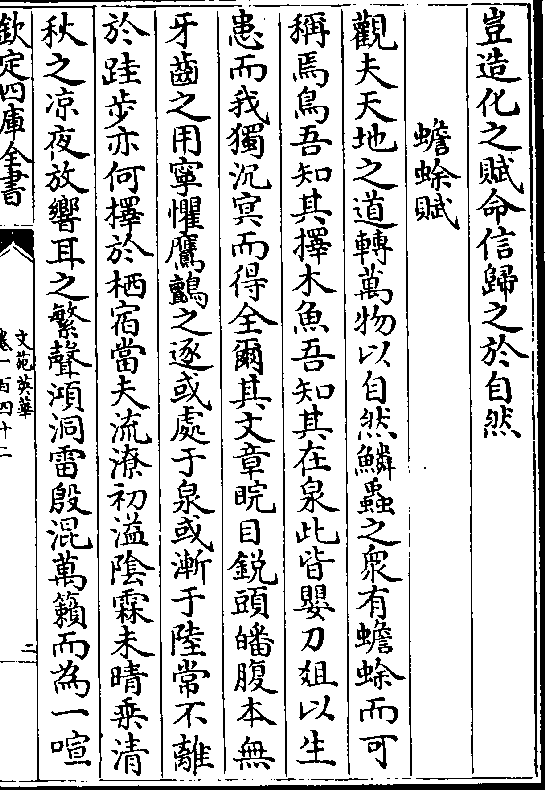 豈造化之賦命信歸之於自然
蟾蜍賦
觀夫天地之道轉萬物以自然鱗蟲之衆有蟾蜍而可
稱焉鳥吾知其擇木魚吾知其在泉此皆嬰刀俎以生
患而我獨沉冥而得全爾其文章睆目鋭頭皤腹本無
牙齒之用寧懼鷹鸇之逐或處于泉或漸于陸常不離
於跬步亦何擇於栖宿當夫流潦初溢陰霖未晴乗清
秋之凉夜放響耳之繁聲澒洞雷殷混萬籟而為一喧
欽定四庫全書
文苑英華
卷一百四十二
二